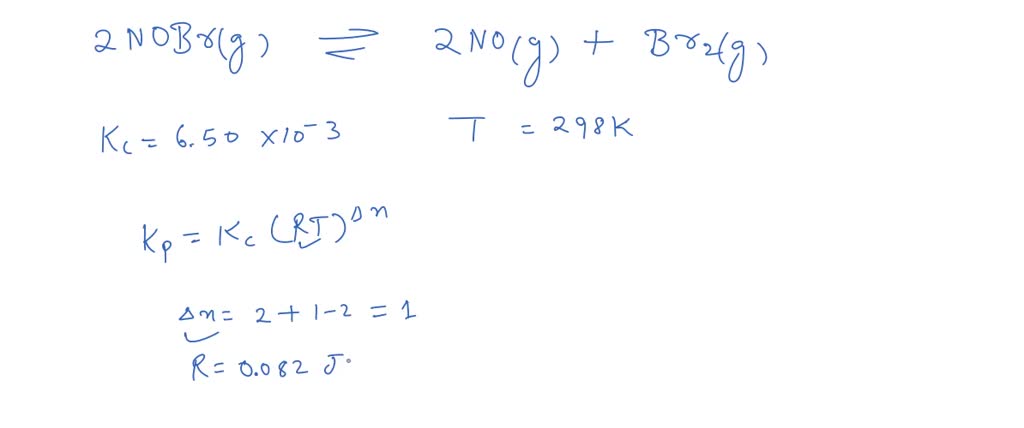 2NOBr(g) ⇌ 2NO(g) + Br2(g)
Kc = 6.50 ×10^-3 T = 298K
Kp = Kc (RT)^Δn
Δn = 2+1-2 = 1
R = 0.082 J.